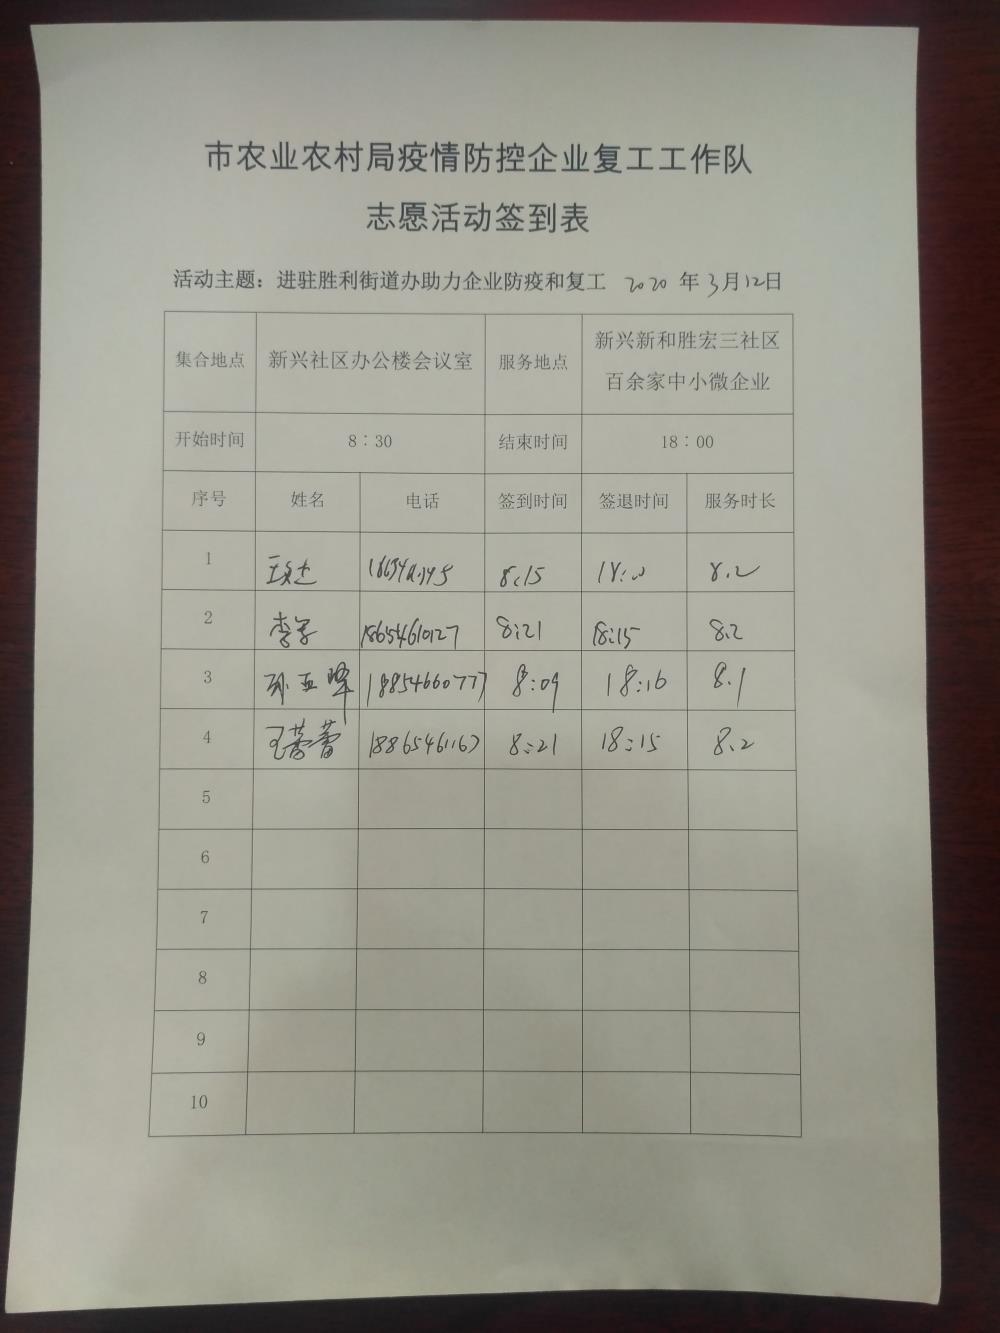 市农业农村局疫情防控企业复工工作队
志愿活动签到表
活动主题：进驻胜利街道办助力企业防疫和复工 2020 年 3月12日
集合地点 新兴社区办公楼会议室 服务地点 新兴新和胜宏三社区
百余家中小微企业
开始时间 8：30 结束时间 18：00
序号 姓名 电话 签到时间 签退时间 服务时长
1 8:15 18:00 8.2
2 李军 18654610127 8:21 18:15 8.2
3 孙亚峰 18854660777 8:09 18:16 8.1
4 王蕾蕾 18865461167 8:21 18:15 8.2
5
6
7
8
9
10